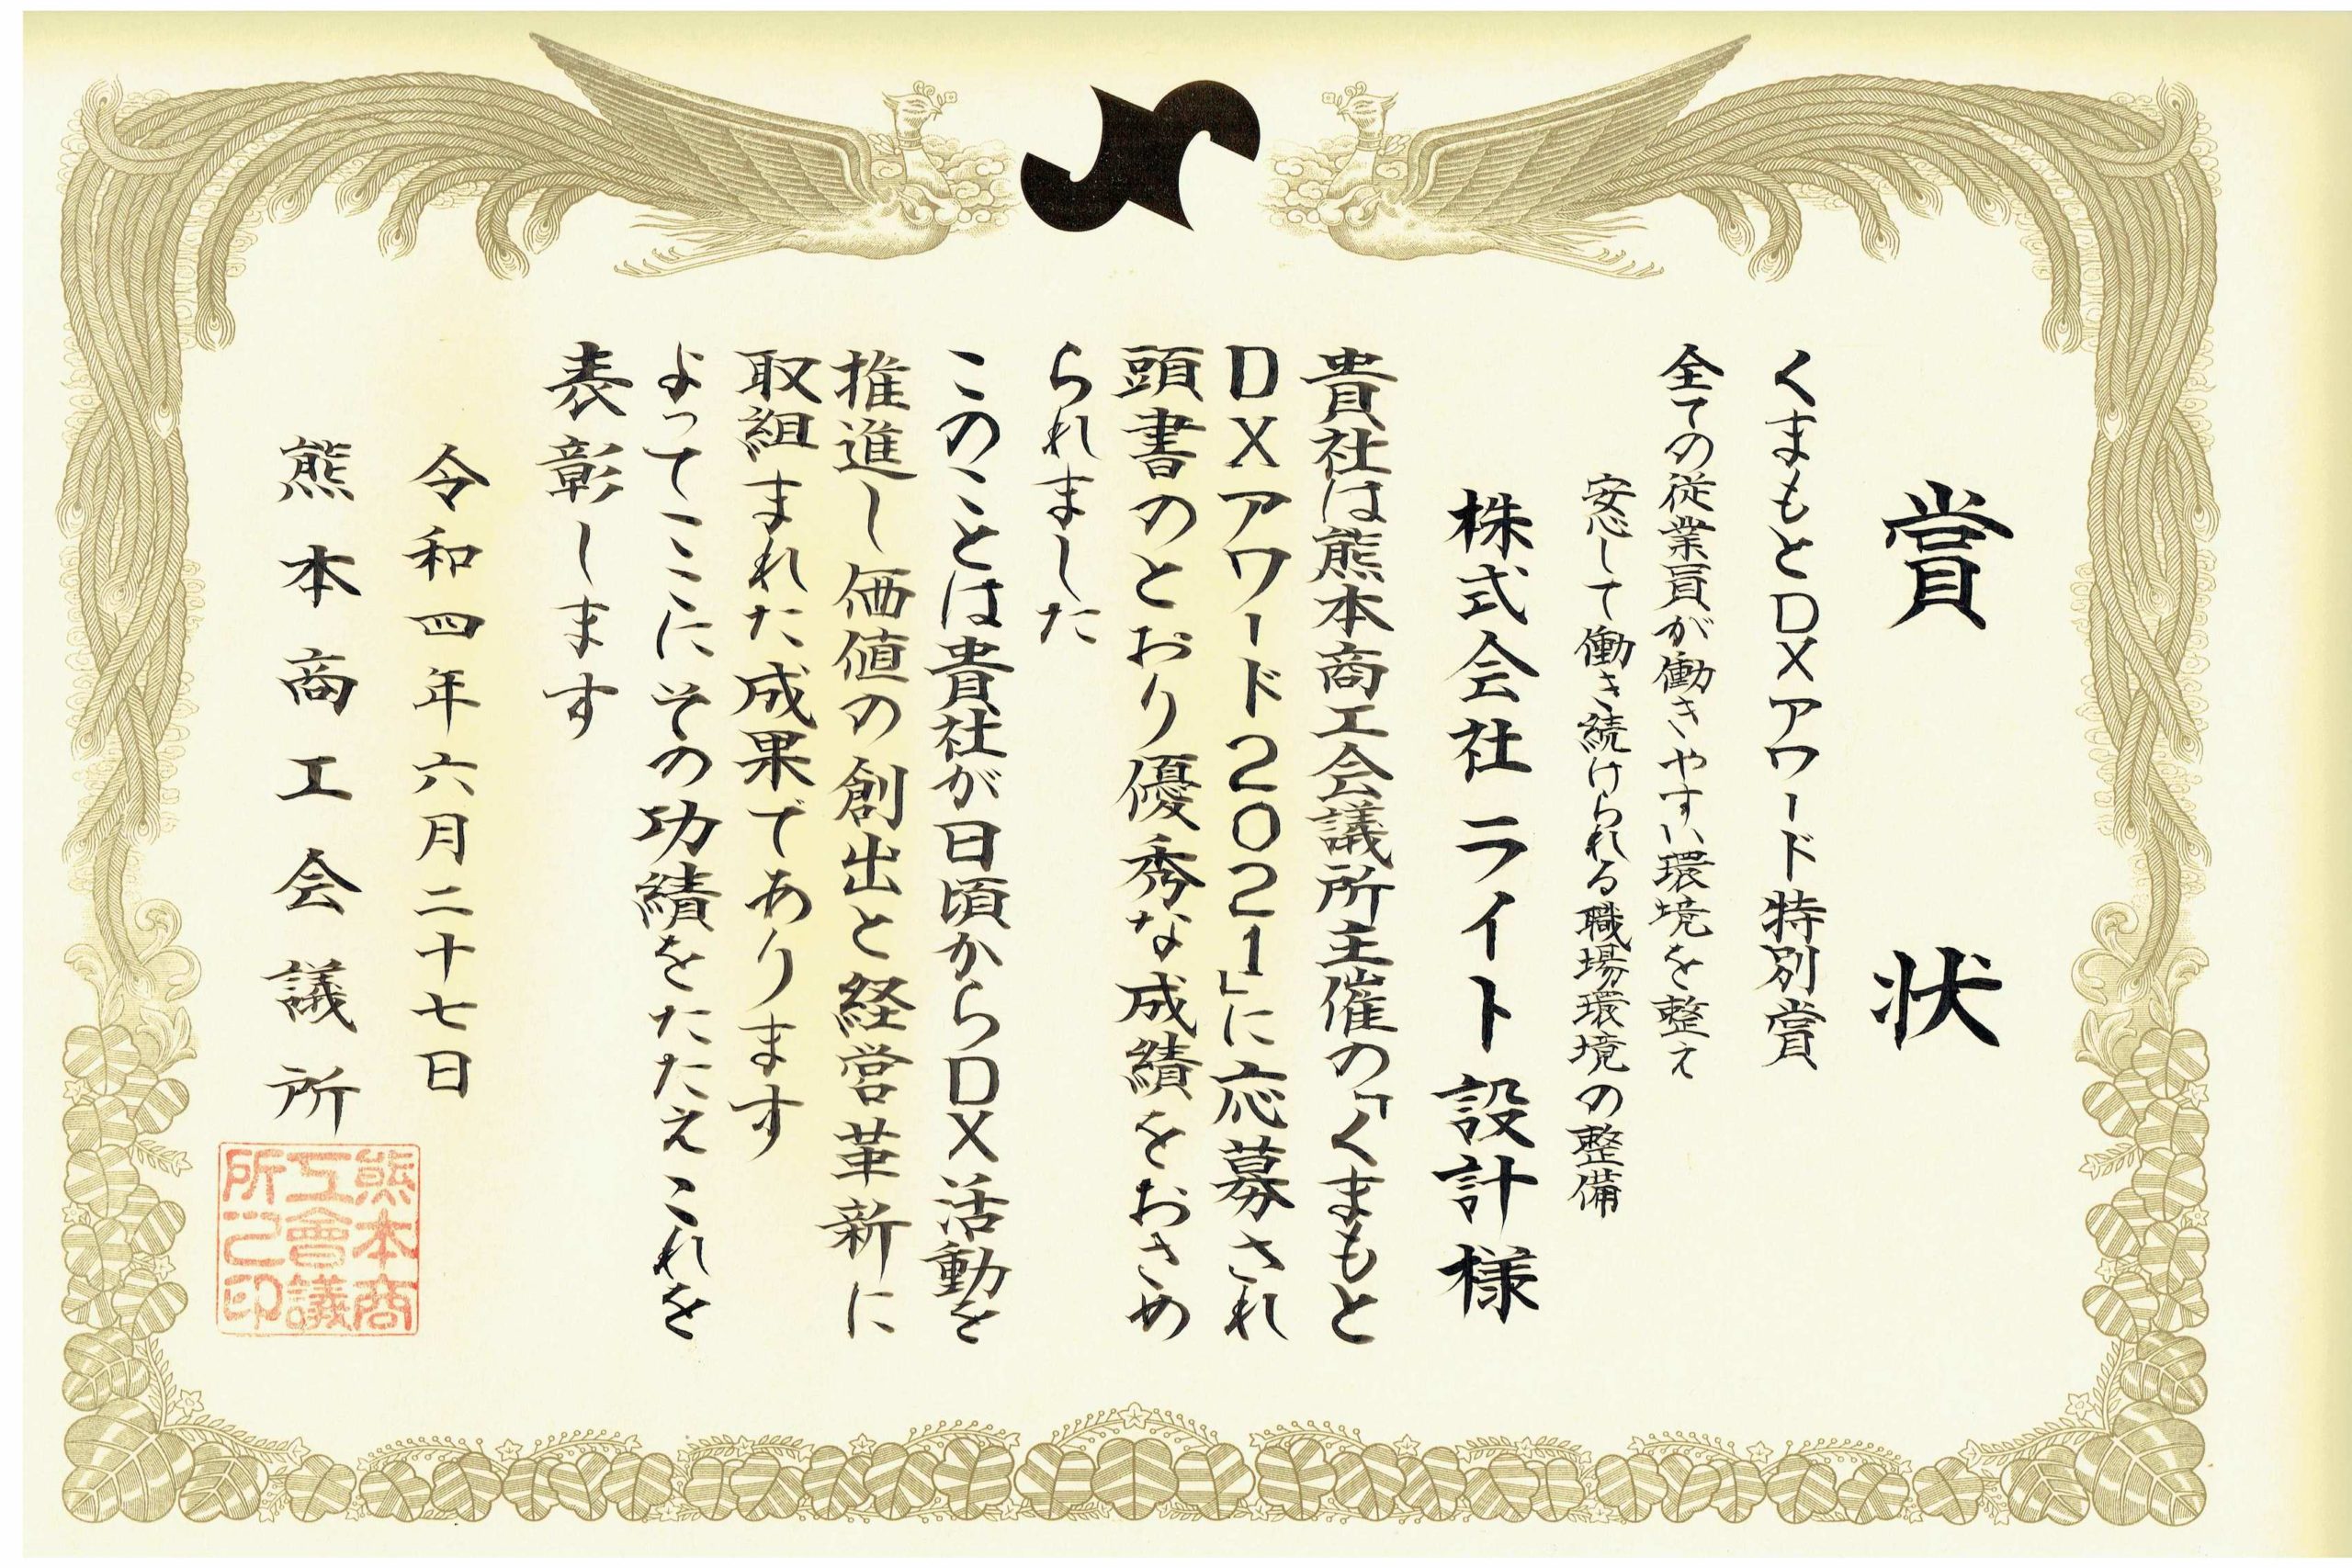 賞状
くまもとDXアワード特別賞
全ての従業員が働きやすい環境を整え
安心して働き続けられる職場環境の整備
株式会社ライト設計様
貴社は熊本商工会議所主催の「くまもと
DXアワード2021」に応募され
頭書のとおり優秀な成績をおさめ
られました
このことは貴社が日頃からDX活動を
推進し価値の創出と経営革新に
取組まれた成果であります
よってここにその功績をたたえこれを
表彰します
令和四年六月二十七日
熊本商工会議所
熊本商
工會議
所之印